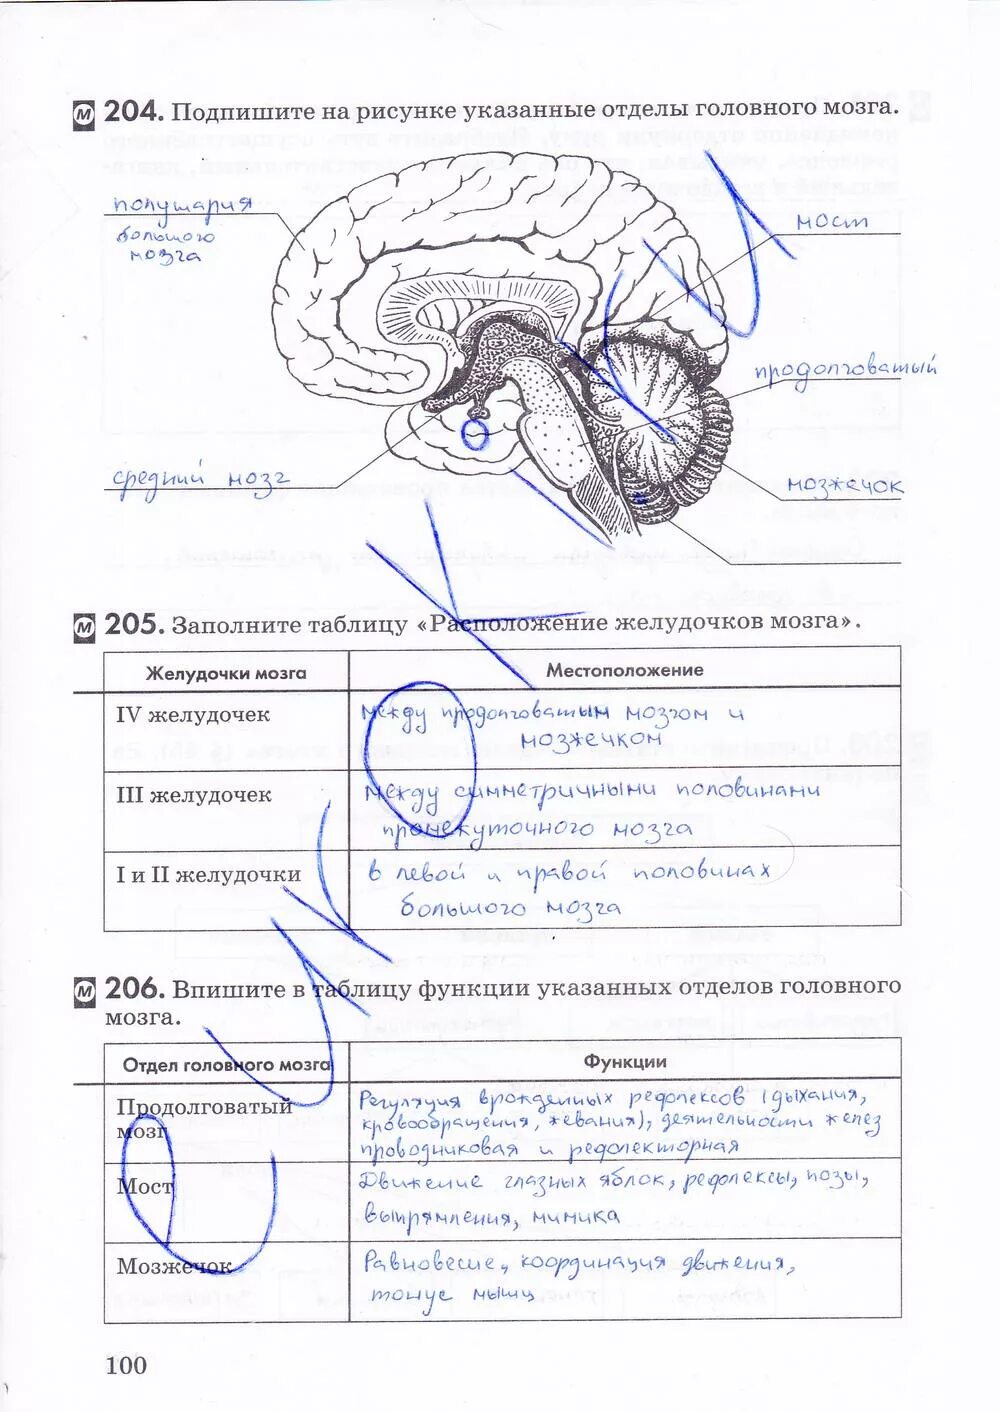 М 204. Подпишите на рисунке указанные отделы головного мозга.
полушария
большого
мозга
мост
продолговатый
средний мозг
мозжечок
М 205. Заполните таблицу «Расположение желудочков мозга».
Желудочки мозга Местоположение
IV желудочек между продолговатым мозгом и
мозжечком
III желудочек между симметричными половинами
промежуточного мозга
I и II желудочки в левой и правой половинах
большого мозга
М 206. Впишите в таблицу функции указанных отделов головного
мозга.
Отдел головного мозга Функции
Продолговатый
мозг
Регуляция врожденных рефлексов (дыхания,
кровообращения, жевания), деятельности желез
проводниковая и рефлекторная
Мост
Движение глазных яблок, рефлексы, позы,
выпрямления, мимика
Мозжечок
Равновесие, координация движения,
тонус мышц
100